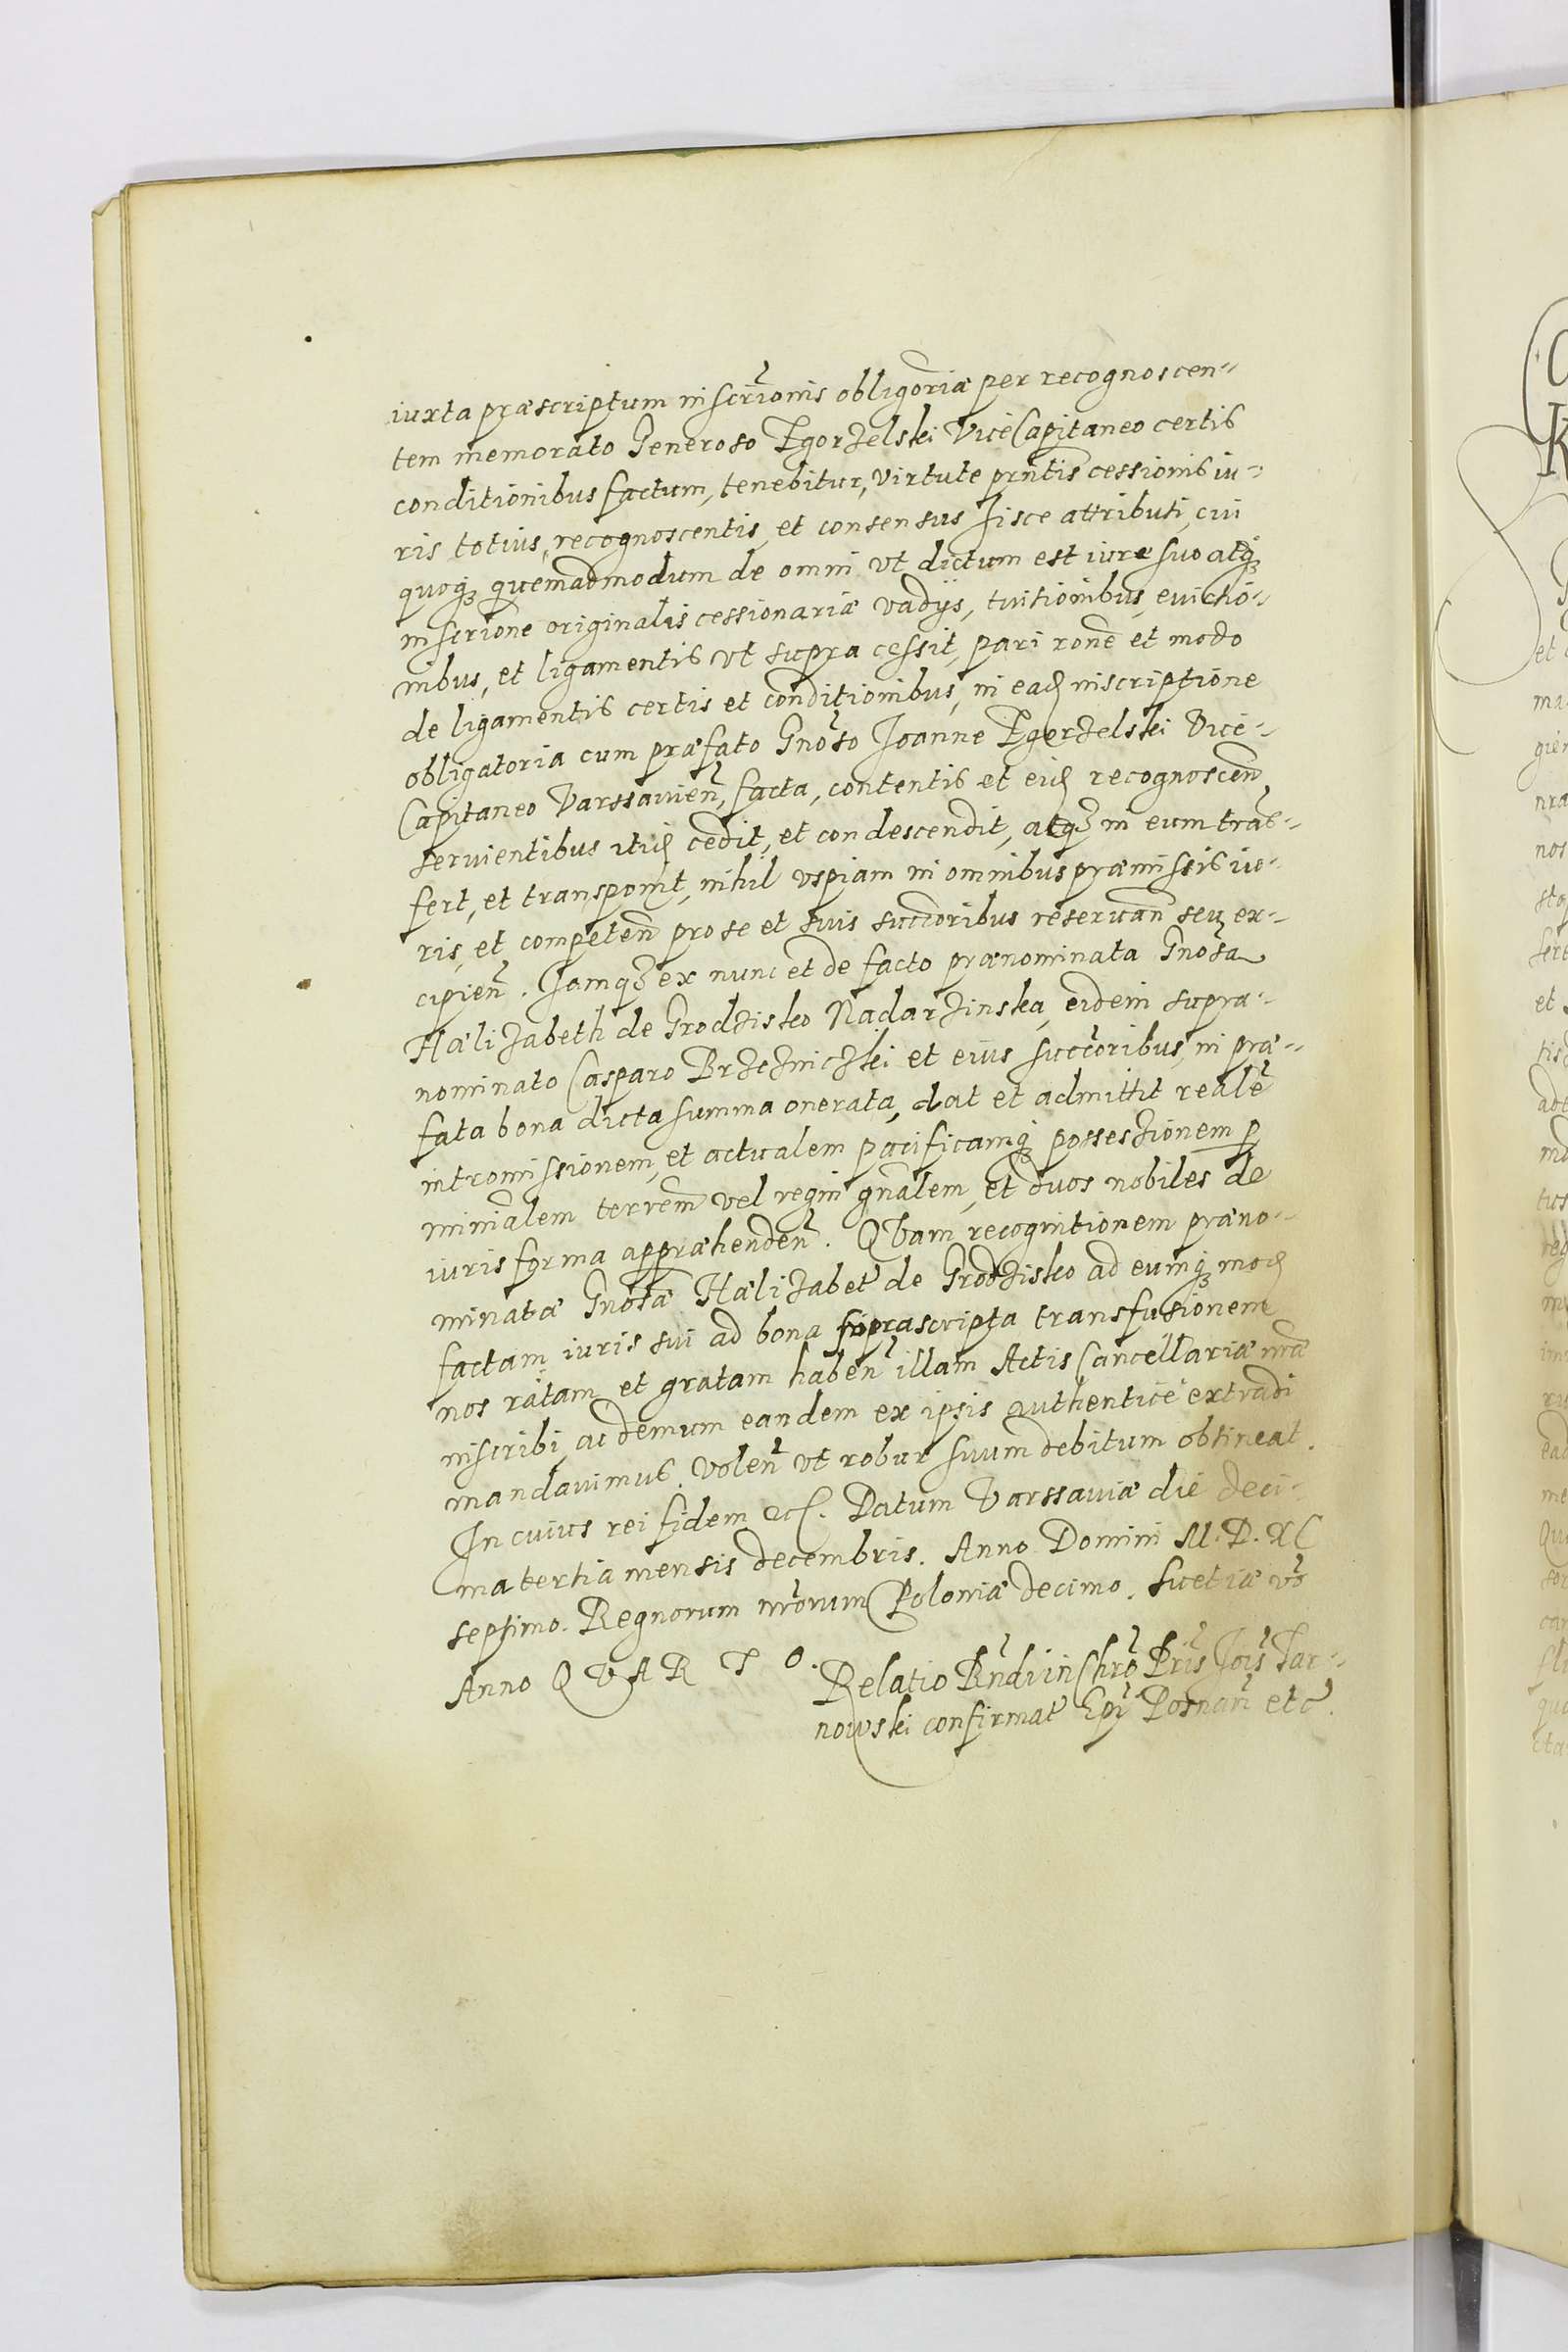 iuxta præscriptum inscr̃ionis obligõriæ per recognoscen-
tem memorato Generoso Zgorzelski ViceCapitaneo certis
conditionibus factum, tenebitur, virtute prñtis cessionis iu-
ris totius, recognoscentis, et consensus hisce attributi, cui
quoq; quemadmodum de omni vt dictum est iure suo atq;
inscrione originalis cessionariæ vadijs, tuitionibus, euictio-
nibus, et ligamentis vt supra cessit, pari rone et modo
de ligamentis certis et conditionibus, in ead inscriptione
obligatoria cum præfato Gnõso Joanne Zgorzelski Vice-
Capitaneo Varssauien̄, facta, contentis et eid recognoscen̄
seruientibus itid cedit, et condescendit, atq; in eum tras-
fert, et transponit, nihil vspiam in omnibus præmissis iu-
ris, et competen̄ pro se et suis succõribus reseruan̄ seu ex-
cipien̄. Jamq; ex nunc et de facto prænominata Gnosa
Hælizabeth de Grodzisko Nadarzinska, eidem supra-
nominato Casparo Brzezniczki et eius succõribus, in præ-
fata bona dicta summa onerata, dat et admittit realē
intromissionem, et actualem pacificamq; possessionem p
minialem terrem vel regni gñalem, et duos nobiles de
iuris forma appræhenden̄. Qvam recognitionem præno-
minatæ Gnosæ Hælizabet de Grodzisko ad eumq; mod
factam iuris sui ad bona suprascripta transfusionem
nos ratam et gratam haben̄ illam Actis Cancellariæ nræ
inscribi, ac demum eandem ex ipsis authenticè extradi
mandauimus. Volen̄ vt robur suum debitum obtineat.
In cuius rei fidem etc. Datum Varssauiæ die deci-
ma tertia mensis decembris. Anno Domini M. D. XC
septimo. Regnorum nrõrum Poloniæ decimo. Suetiæ vō
Anno QVARTO.
Relatio Rn̄di in Chrō Pris Jois Tar-
nowski confirmat Epī Posnan̄ etc.